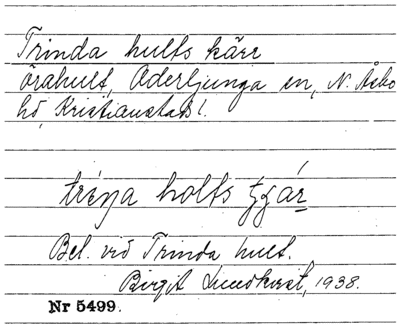 Trinda hults kärr
Örahult, Oderljunga sn, N. Åsbo
hd, Kristianstads l.
holts
Bel. vid Trinda hult.
Birgit Lundkvist, 1938.
Nr 5499.